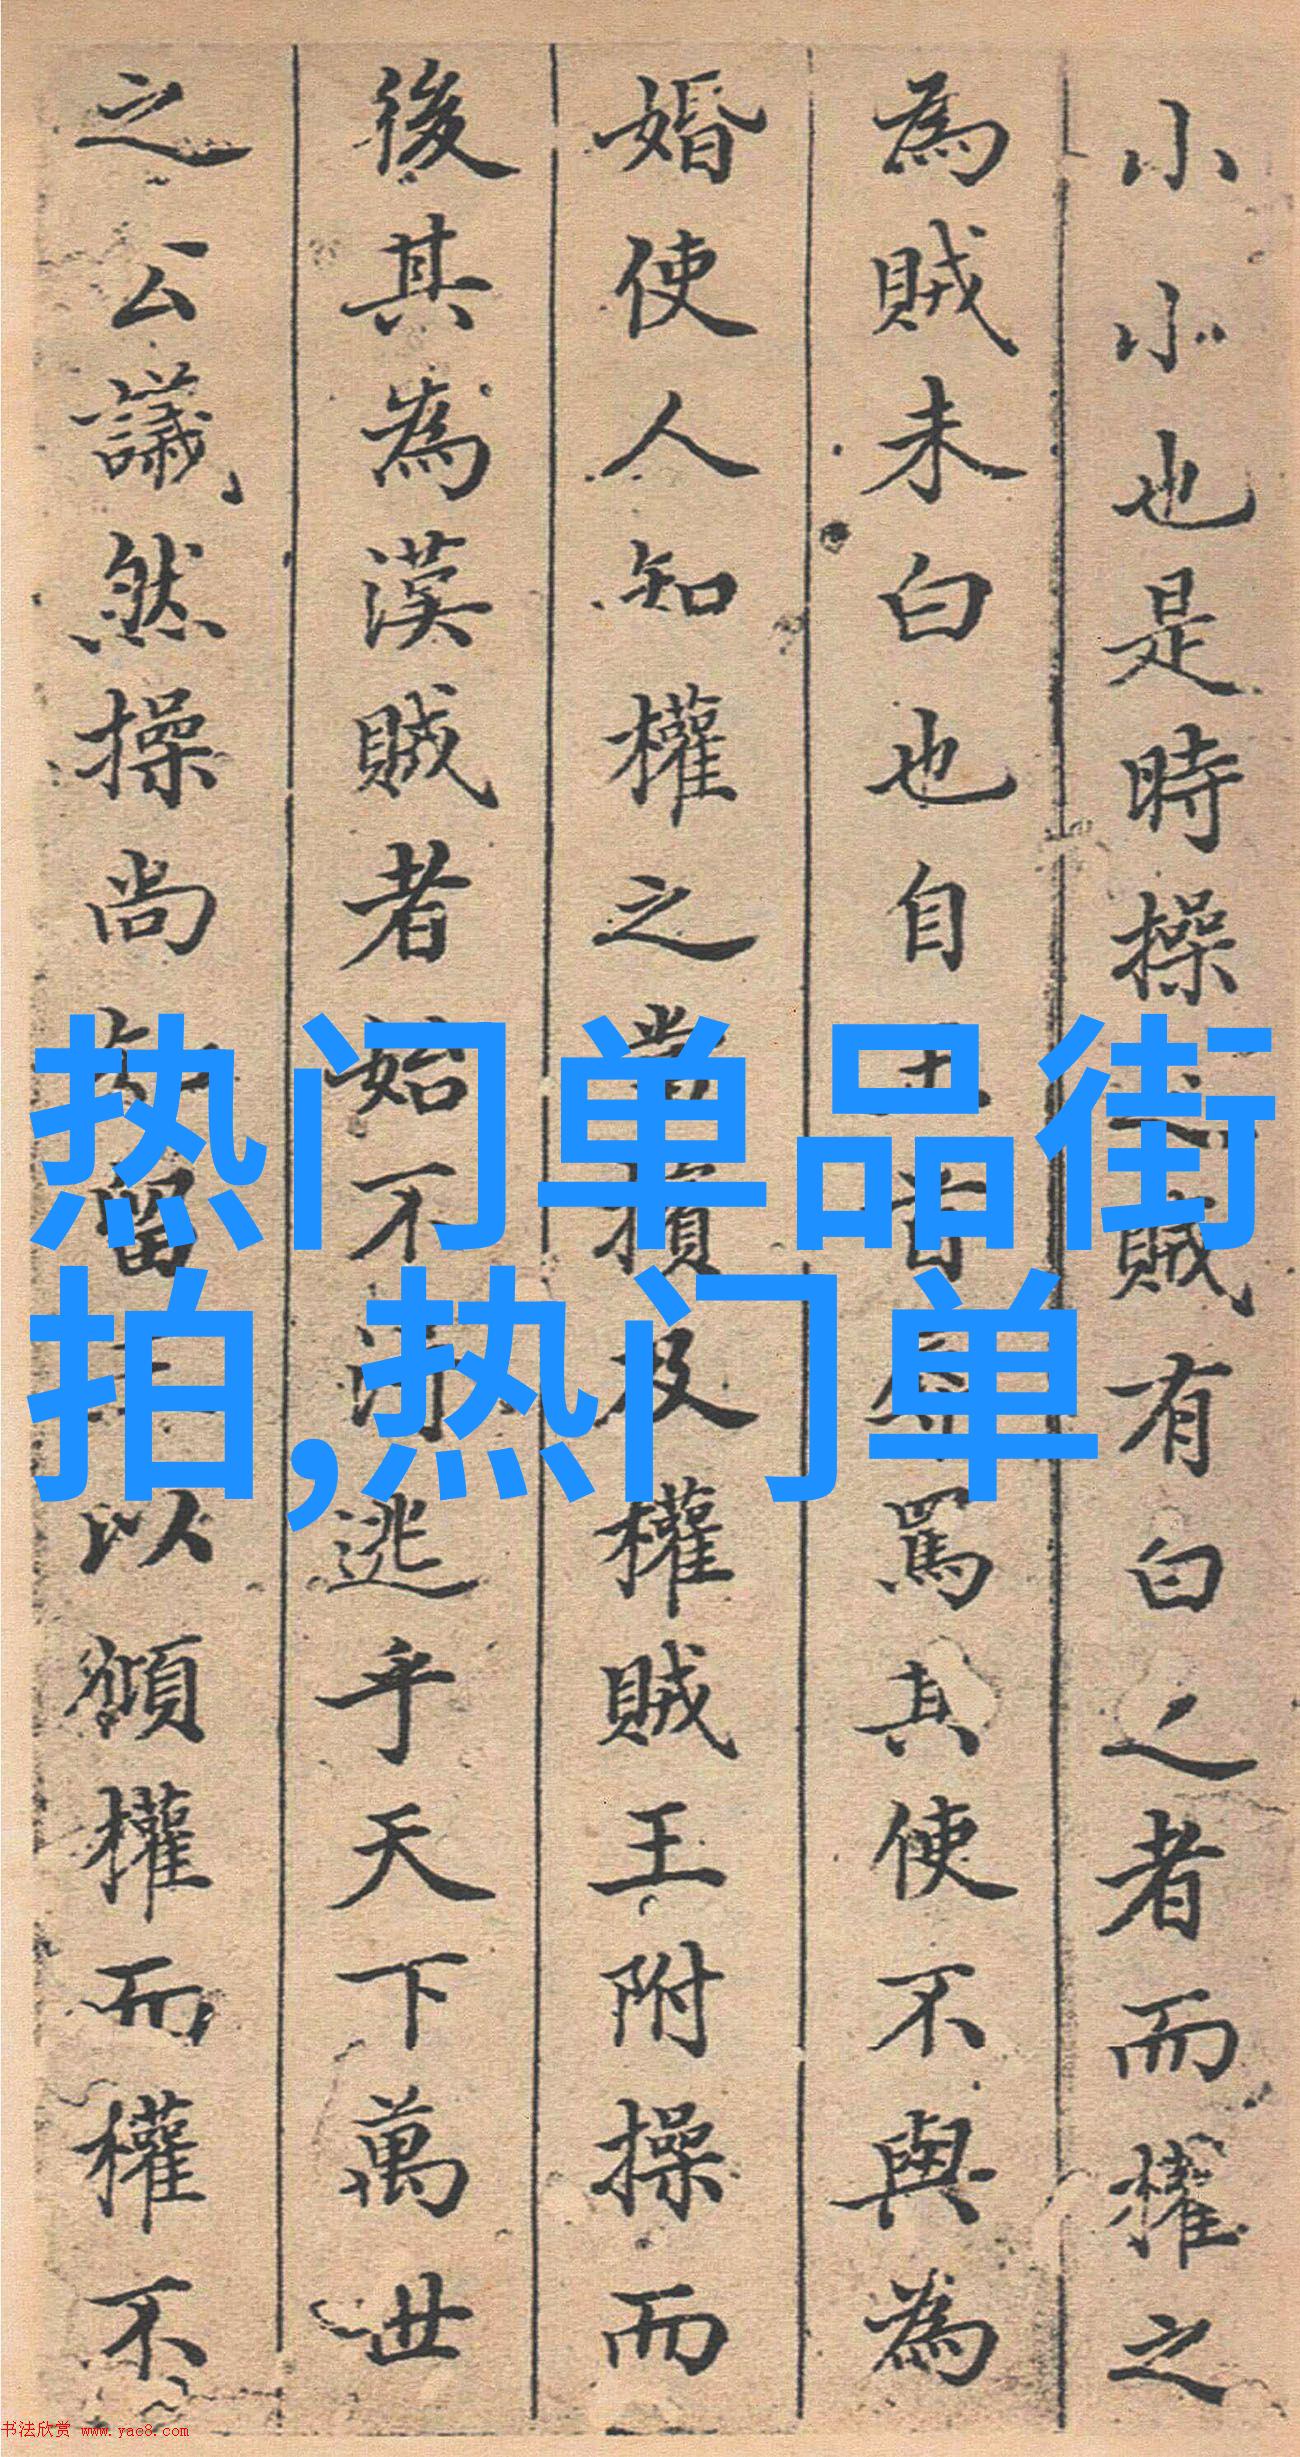 小小也是時操之賊有白之者而權之
為賊未白也自
罵其使不與為
婚使人知權之
損及權賊王附操而
後其為漢賊者始不
逃乎天下萬世
之公議然操尚
留
以
權而權不
热门单品街
拍,热门单
书法欣赏 www.yac8.com